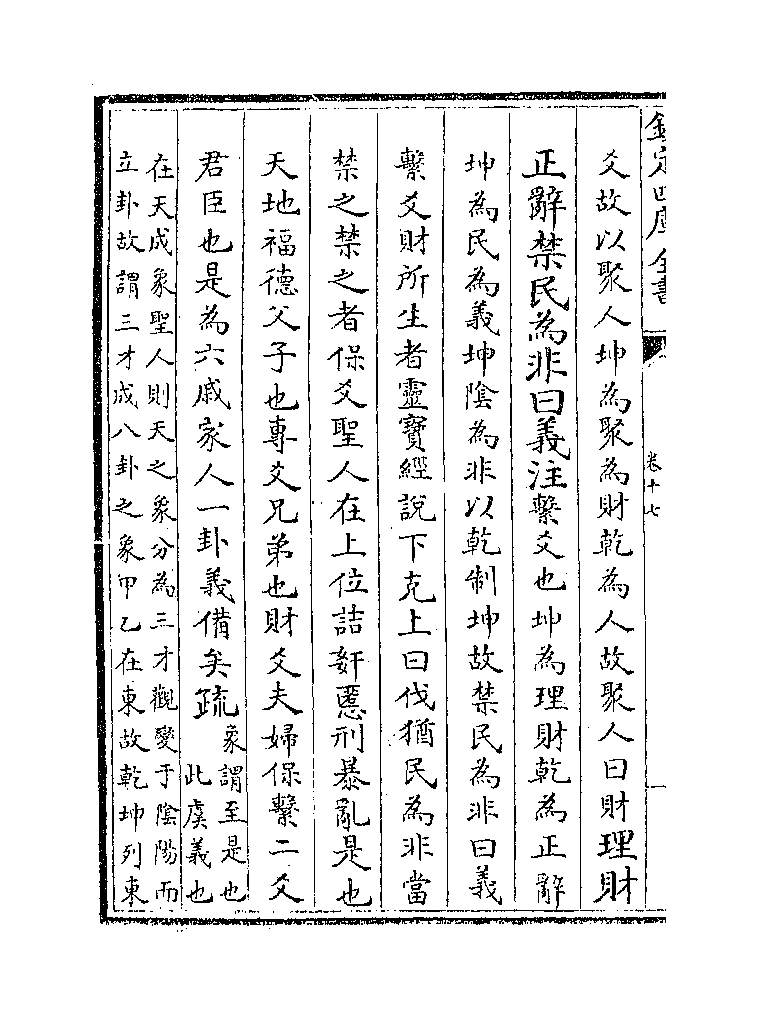 欽定四庫全書
卷十七
爻故以聚人坤為聚為財乾為人故聚人曰財理財
正辭禁民為非曰義注繫爻也坤為理財乾為正辭
坤為民為義坤陰為非以乾制坤故禁民為非曰義
繫爻財所生者靈寶經說下克上曰伐猶民為非當
禁之禁之者保爻聖人在上位詰姧慝刑暴亂是也
天地福德父子也專爻兄弟也財爻夫婦保繫二爻
君臣也是為六戚家人一卦義備矣疏
象謂至是也
此虞義也
在天成象聖人則天之象分為三才觀變于陰陽而
立卦故謂三才成八卦之象甲乙在東故乾坤列東